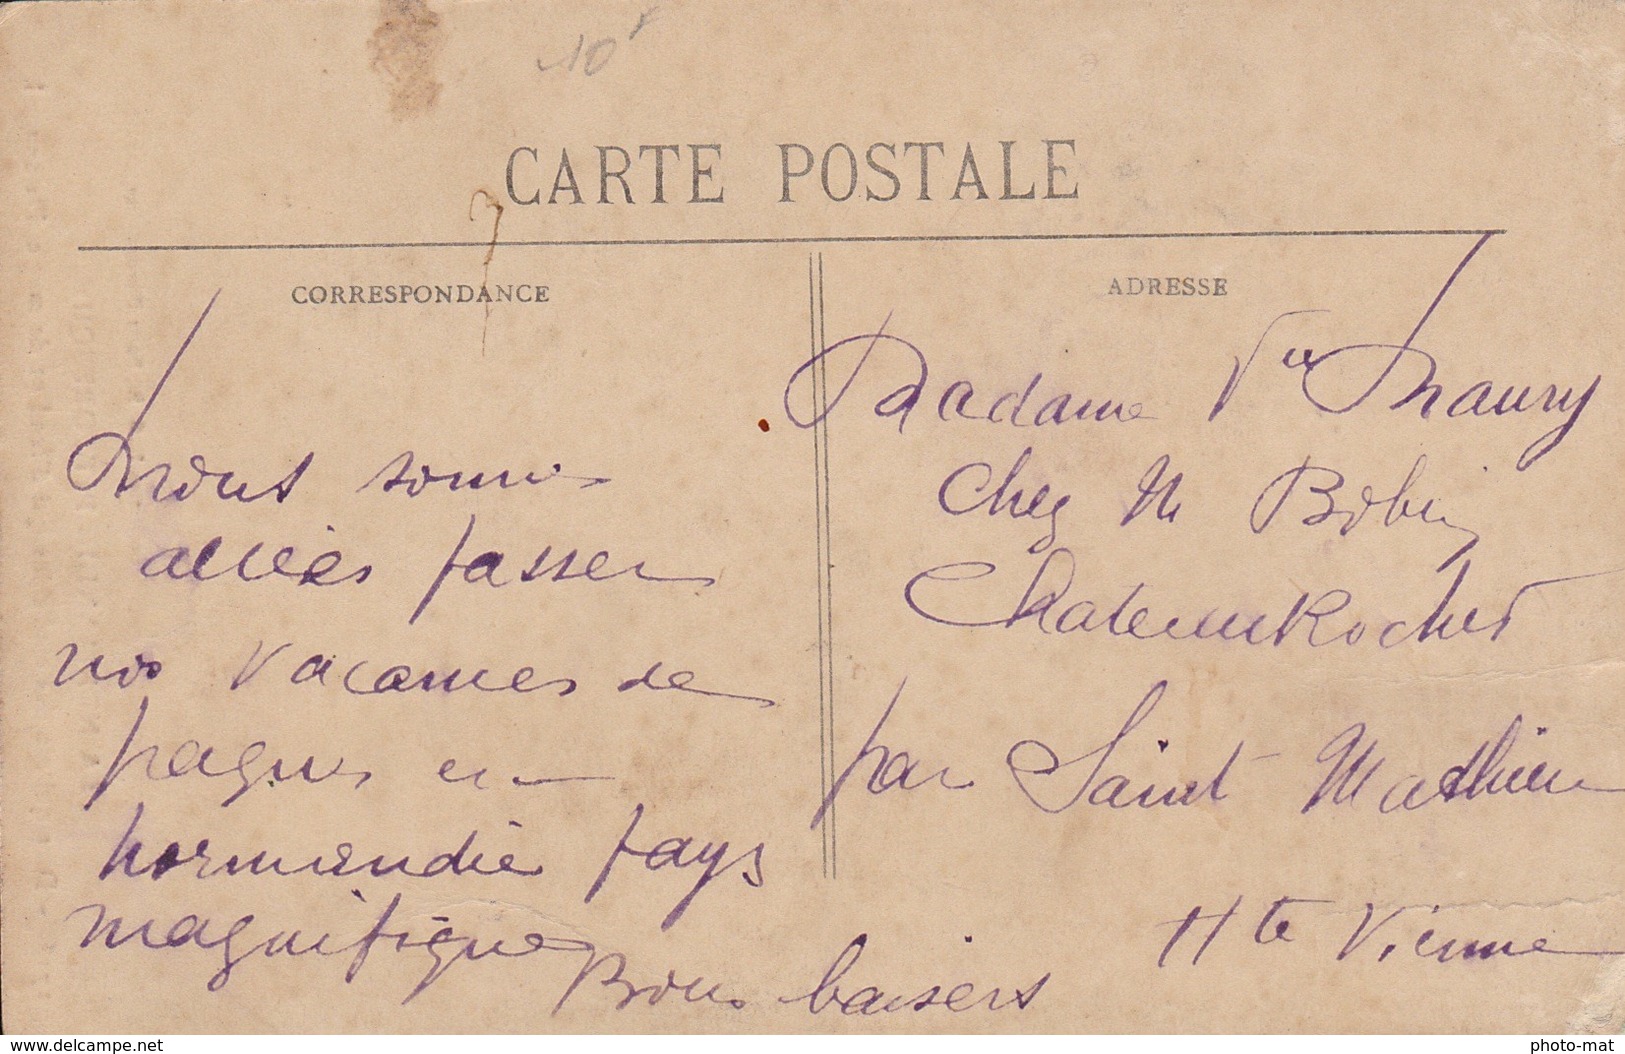 10f
CARTE POSTALE
CORRESPONDANCE
Nous sommes
allées passer
nos vacances de
paques en
normandie pays
magnifique
Bons baisers
ADRESSE
Madame Vve Maury
Chez M Bobin
Chateau Rochet
par Saint Mathieu
Hte Vienne
www.delcampe.net
photo-mat